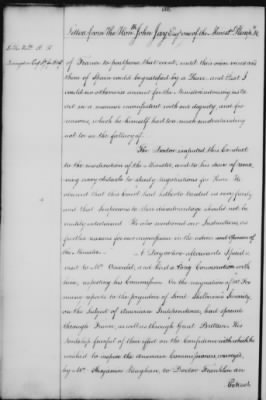 Letter from The Honble John Jay Esqr one of the Minist. Plenipo. &c
To the Honble R. R.
Livingston Esqr
of France to postpone that event, until their own views and
those of Spain could be gratified by a Peace. and that I
could no otherwise account for the Minister's advising us to
act in a manner inconsistent with our dignity, and for
reasons, which he himself had too much understanding
not to see the fallacy of.
The Doctor imputed this conduct
to the moderation of the Minister, and to his desire of remo-
ving every obstacle to speedy negotiations for Peace. He
observed that this Court had hitherto treated us very fairly,
and that suspicions to their disadvantage should not be
readily entertained. He also mentioned our Instructions, as
further reasons for our acquiescence in the advice and Opinion of
the Minister.
A Day or two afterwards I paid a
visit to Mr. Oswald, and had a long Conversation with
him, respecting his Commission. On the resignation of Mr. Fox
many reports to the prejudice of Lord Shelburne's Sincerity,
on the Subject of American Independence, had spread
through France, as well as through Great Britain. His
Lordship fearful of their effect on the Confidence with which he
wished to inspire the American Commissioners, conveyed,
by Mr. Benjamin Vaughan, to Doctor Franklin an
Extract